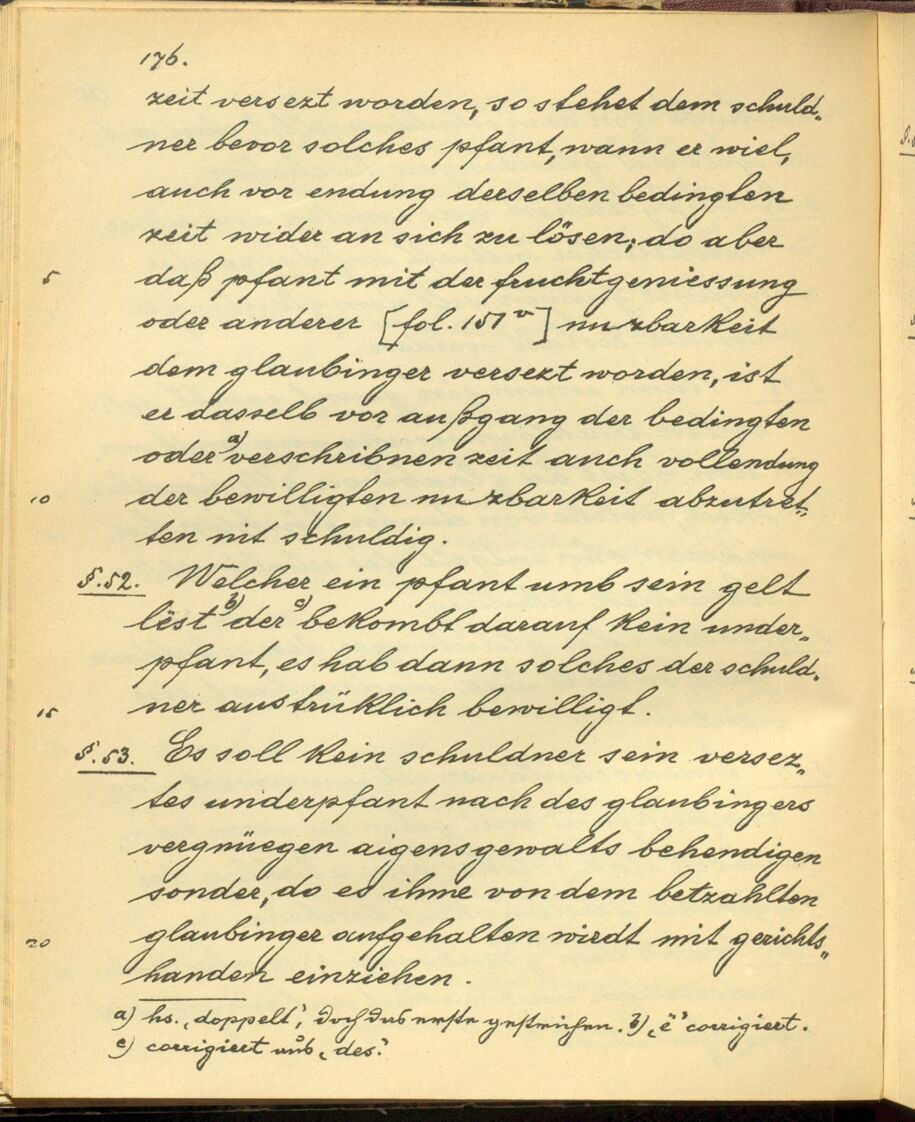 176.
zeit versezt worden, so stehet dem schuld„
ner bevor solches pfant, wann er wiel,
auch vor endung derselben bedingten
zeit wider an sich zu lösen; do aber
5 daß pfant mit der fruchtgeniessung
oder anderer [fol. 151 v] nuzbarkeit
dem glaubinger versezt worden, ist
er dasselb vor außgang der bedingten
oder a) verschribnen zeit auch vollendung
10 der bewilligten nuzbarkeit abzutret„
ten nit schuldig.
§.52. Welcher ein pfant umb sein gelt
lëst b) der c) bekombt darauf kein under„
pfant, es hab dann solches der schuld„
15 ner austrüklich bewilligt.
§.53. Es soll kein schuldner sein versez„
tes underpfant nach des glaubingers
vergnüegen aigens gewalts behendigen
sonder, do es ihme von dem betzahlten
20 glaubinger aufgehalten wirdt mit gerichts„
handen einziehen.
a) hs. ‚doppelt‘, doch das erste gestrichen. b) ‚ë‘ corrigiert.
c) corrigiert aus ‚des‘.